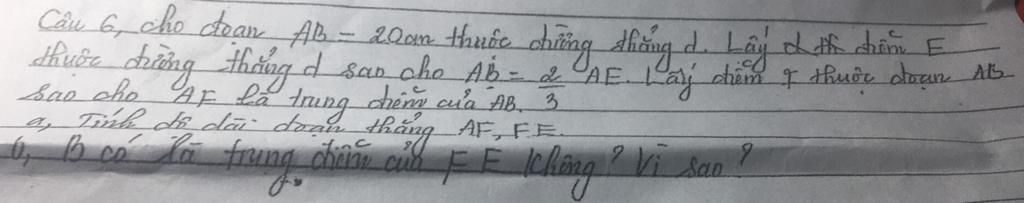 Câu 6, cho đoạn AB = 20cm thuộc đường thẳng d. Lấy điểm E
thuộc đường thẳng d sao cho AB = 2/3 AE. Lấy điểm F thuộc đoạn AB
sao cho AF là trung điểm của AB.
a, Tính độ dài đoạn thẳng AF, FE.
b, B có là trung điểm của FE không? Vì sao?